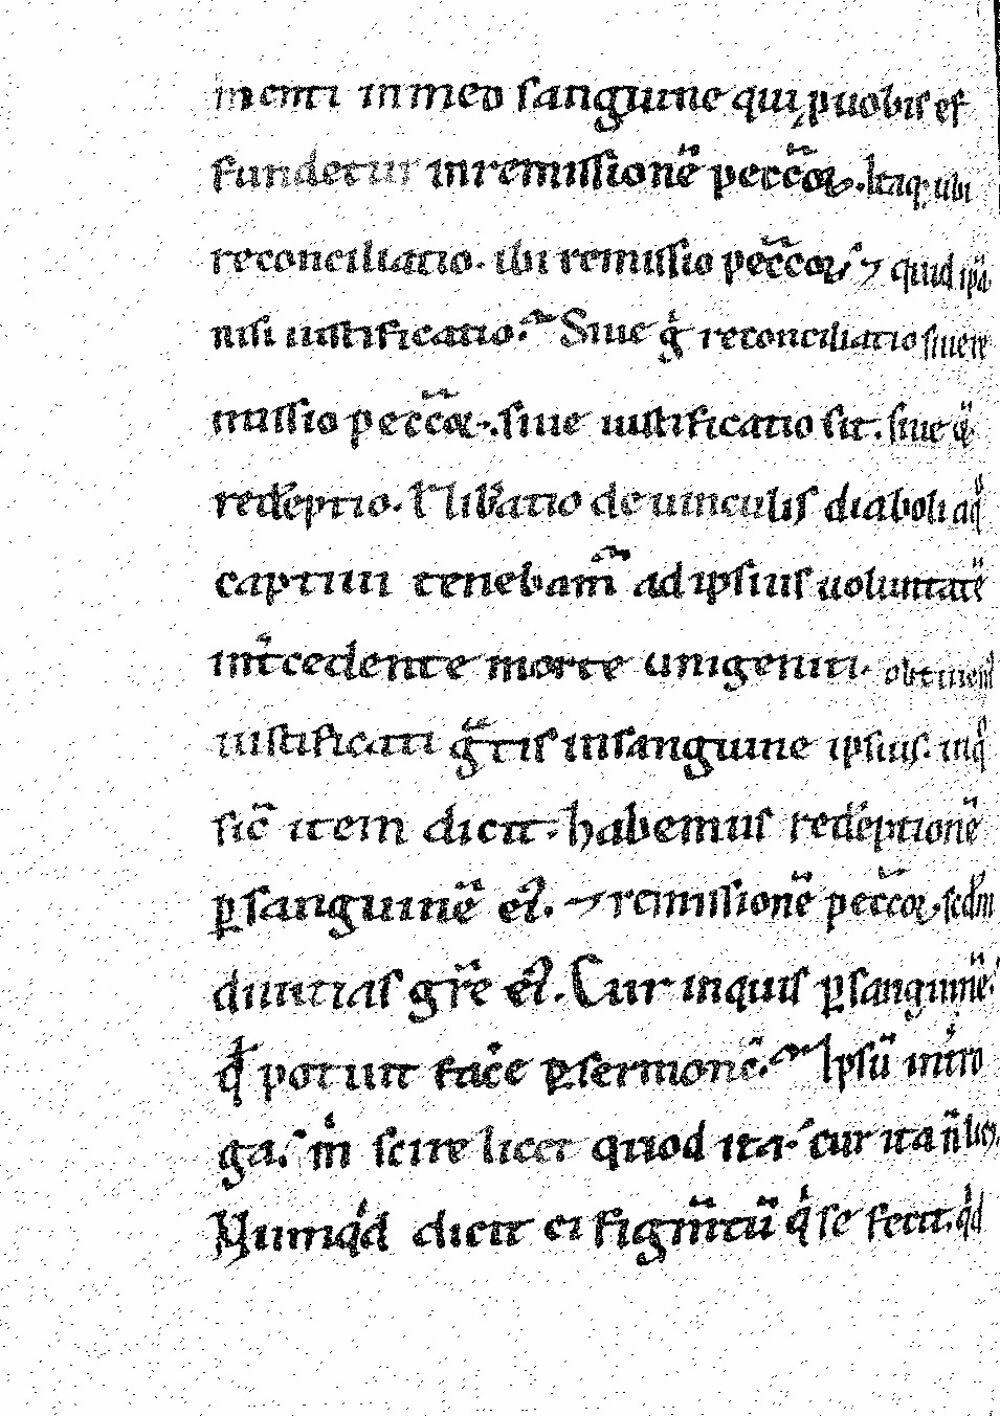 menti in meo sanguine qui, ꝓ uobis ef
fundetur in remissionē pecc̄oꝝ. Itaq; ubi
reconciliatio. ibi remissio pecc̄oꝝ. ⁊ quid ipā
nisi iustificatio. Siue gͦ reconciliatio siue re
missio pecc̄oꝝ. siue iustificatio sit. siue &
redēptio. ł lib̄atio de uinculis diaboli a qͦ
captiui tenebam̄ ad ipsius uoluntatē
int̄cedente morte unigeniti. obtinem
iustificati gͣtis in sanguine ipsius. in qͦ
sic̄ item dicit. habemus redēptionē
ꝑ sanguinē eꝰ. ⁊ remissionē pecc̄oꝝ, scd̄m
diuitias gr̄e eꝰ. Cur inquis ꝑ sanguinē.
qđ potuit fac̄e ꝑ sermonē. Ipsū int̄ro
ga. m̍ scire licet quod ita. cur ita n̄ licet.
Numqͥd dicit ei figm̄tū qͥ se fecit. qͥd